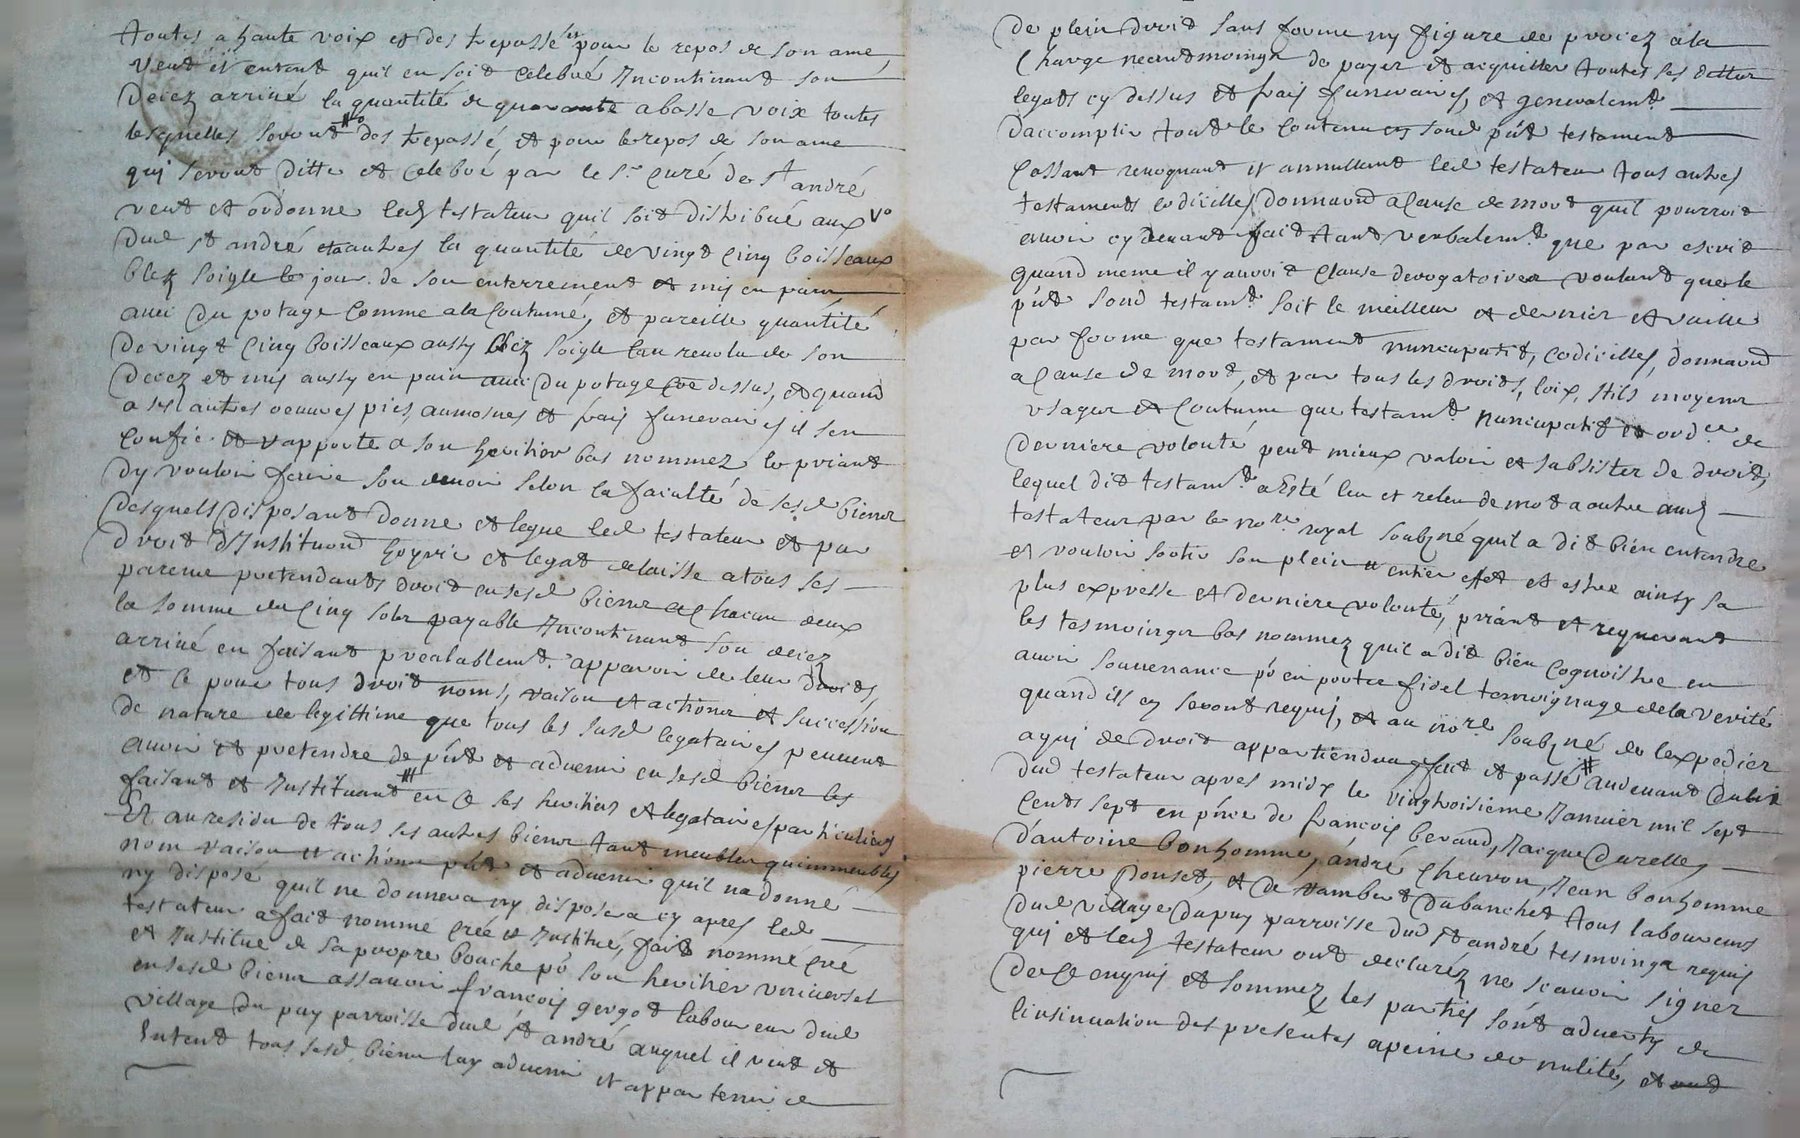 toutes a haute voix et des trepassé pour le repos de son ame
veut et entent quil en soit celebré Incontinant son
decez arrivé la quantité de quarante a basse voix toutes
lesquelles seront des trepassé, et pour le repos de son ame
qui seront ditte et celebré par le Sr curé de St andré
veut et ordonne led testateur quil soit distribué aux Vo
dud St andré et autres la quantité de vingt cinq boisseaux
blez soigle le jour de son enterrement et mis en pain
avec du potage comme a la coutume, et pareille quantité
de vingt cinq boisseaux aussy blez soigle lan revolu de son
decez et mis aussy en pain avec du potage coe dessus, et quand
a ses autres oeuvres pies, aumosnes et frais funeraires il sen
confie et rapporte a son heritier bas nommez le priant
dy vouloir faire son devoir selon la faculté de sesd biens
desquels disposant donne et legue led testateur et par
droit dInstituon heyrie et legat delaisse a tous ses
parens pretendants droit en sesd biens a chacun deux
la somme de cinq sols payable Incontinant son decez
arrivé en faisant prealablemt apparoir de leur droits,
et ce pour tous droit noms, raison et actions et succession
de nature de legittime que tous les susd legataires peuvent
avoir et pretendre de pnt et advenir en sesd biens les
faisant et Instituant en ce ses heritiers et legataires particuliers
Et au residu de tous ses autres biens tant meubles quimmeubles
nom raison et actions pnt et advenir quil na donné
ny disposé quil ne donnera ny disposera cy apres led
testateur a fait nommé creé et Institué, fait nomme creé
et Institue de sa propre bouche po son heritier universel
en sesd biens assavoir françois gergot laboureur dud
village du puy parroisse dud St andré auquel il veut et
Entent tous sesd biens luy advenir et appartenir de
de plein droit sans forme ny figure de procez a la
charge neantmoings de payer et acquitter toutes ses dettes
legats cy dessus et frais funeraires, et generalemt
daccomplir tout le contenu en sond pnt testament
Cassant revoquant et annullant led testateur tous autres
testaments codicilles donnaon a cause de mort quil pourroit
avoir cy devant fait tant verbalemt que par escrit
quand meme il y auroit clause derogatoires voulant que le
pnt sond testamt soit le meilleur et dernier et vaille
par forme que testament nuncupatif, codicilles, donnaon
a cause de mort, et par tous les droits, loix, stils moyens
usages et coutume que testamt nuncupatif et ordce de
derniere volonté peut mieux valoir et subsister de droit,
lequel dit testamt a esté leu et releu de mot a autre aud
testateur par le nore royal soubzné quil a dit bien entendre
et vouloir sortir son plein et entier effet et estre ainsy sa
plus expresse et derniere volonté, priant et requerant
les tesmoings bas nommez quil a dit bien cognoistre en
avoir souvenance po en porter fidel temoignage de la verité
quand ils en seront requis, et au nore soubzné de lexpedier
a qui de droit appartiendra fait et passé audevant
dud testateur apres midy le vingtroisieme Janvier mil sept
cents sept en pnce de françois beraud, Jacque Durelles
dantoine bonhomme, andré chevron, Jean bonhomme
pierre ponset, et de Dubanchet tous laboureurs
dud village du puy parroisse dud St andré tesmoings requis
qui et led testateur ont declarez ne scavoir signer
de ce enquis et sommez, les parties sont adverty de
linsinuation des presentes a peine de nulité, et